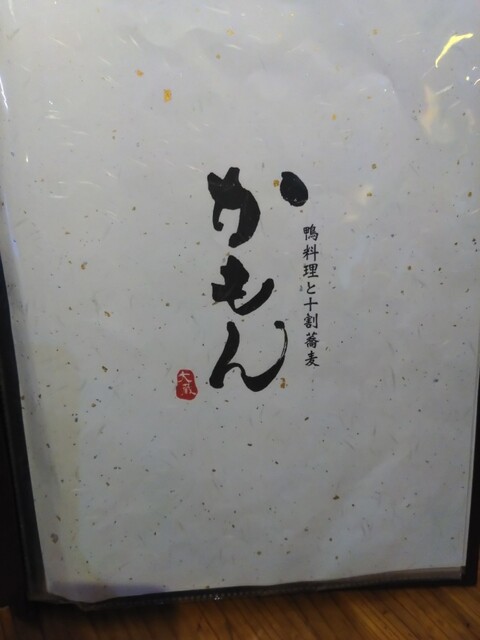 鴨料理と十割蕎麦
かもん